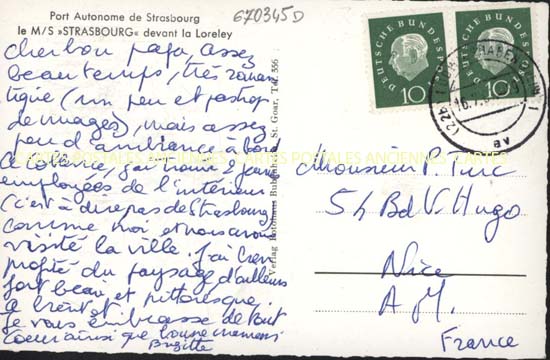 Port Autonome de Strasbourg
le M/S »STRASBOURG« devant la Loreley
670345D
cher bon papa, assez
beau temps, très roman
tique (un peu et pas trop
de nuages), mais assez
peu d'ambiance à bord
j'ai trouvé 2 jeunes
employées de l'intérieur
(c'est à dire pas de Strasbourg
comme moi et nous avons
visité la ville. j'ai bien
profité du paysage d'ailleurs
fort beau et pittoresque.
je vous embrasse de tout
coeur ainsi que bonne maman
Brigitte
Verlag Fotohaus St. Goar, Tel. 356
DEUTSCHE BUNDESPOST
10
DEUTSCHE BUNDESPOST
10
av
CARTES POSTALES ANCIENNES
Monsieur P. Turc
54 Bd V. Hugo
Nice
A M.
France